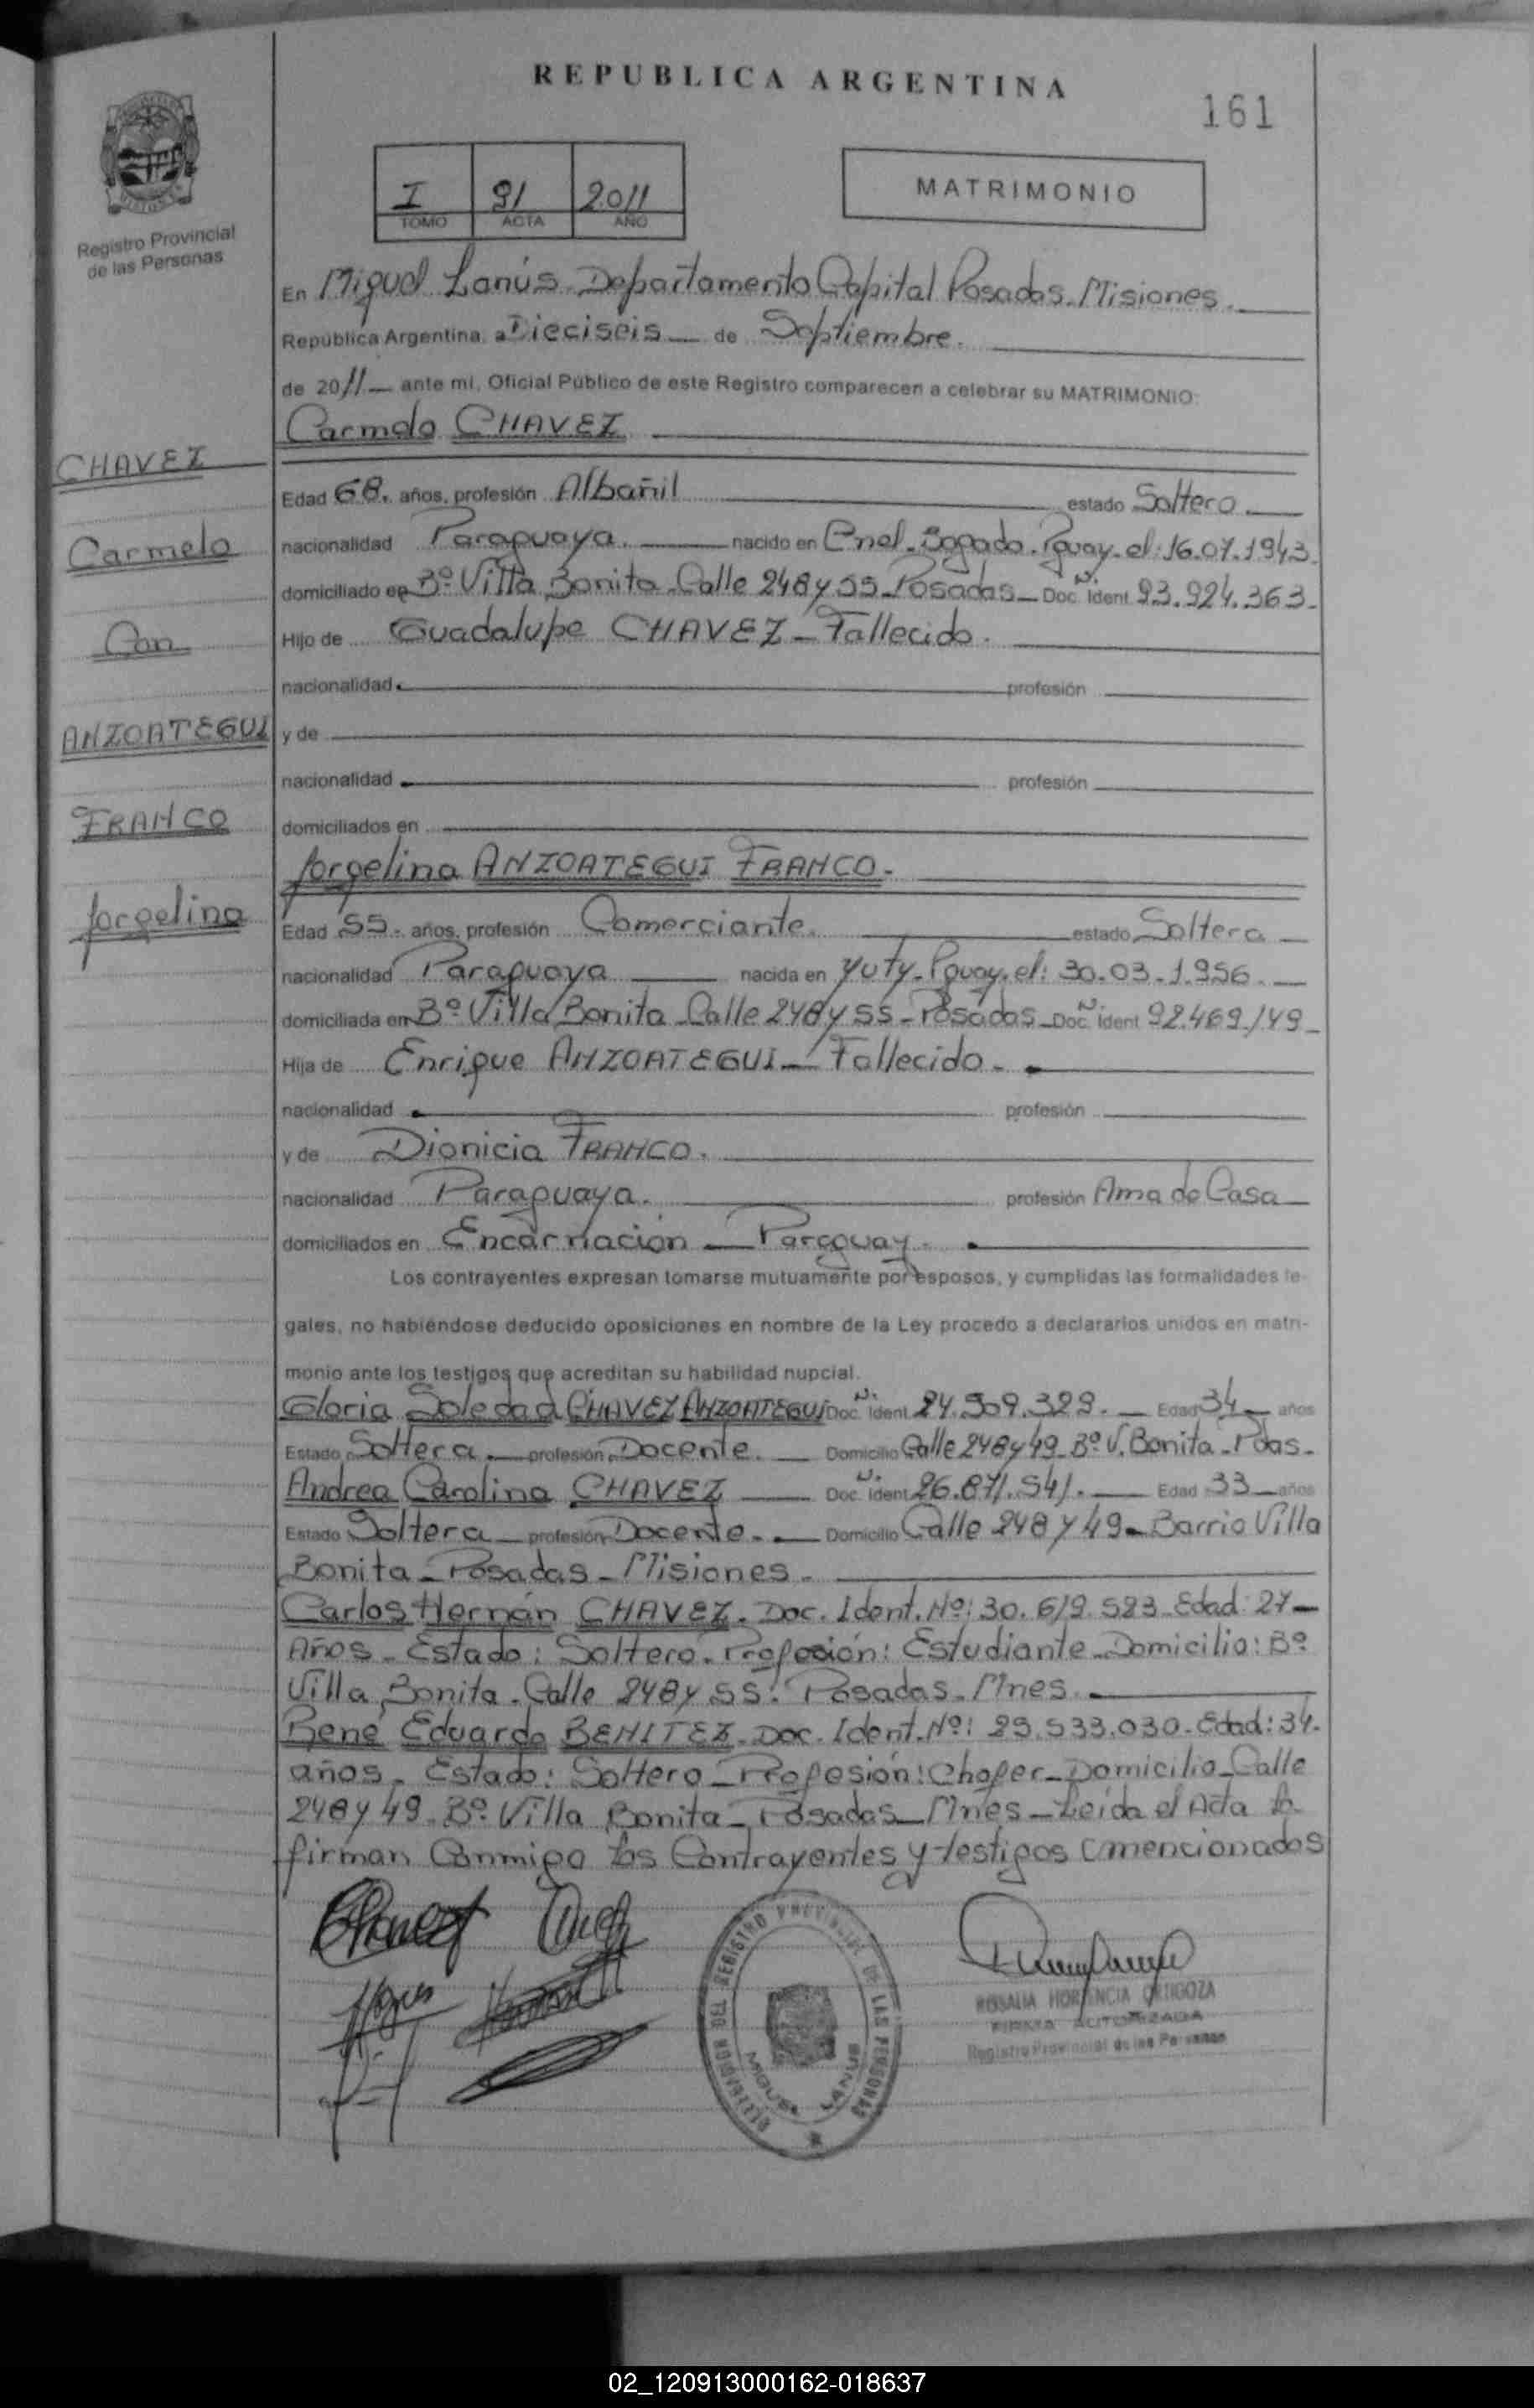 REPUBLICA ARGENTINA
161
I 91 2011
TOMO ACTA AÑO
MATRIMONIO
Registro Provincial
de las Personas
En Miguel Lanús. Departamento Capital Posadas. Misiones.
República Argentina, a Dieciseis de Septiembre.
de 2011 ante mi, Oficial Público de este Registro comparecen a celebrar su MATRIMONIO:
Carmelo CHAVEZ
CHAVEZ
Carmelo
Con
ANZOATEGUI
FRANCO
Jorgelina
Edad 68. años, profesión Albañil estado Soltero.
nacionalidad Paraguaya. nacido en Cnel. Bogado. Pguay. el: 16.07.1943.
domiciliado en Bº Villa Bonita Calle 248 y 55 - Posadas - Doc. Nº Ident. 93.924.363.
Hijo de Guadalupe CHAVEZ - Fallecido.
nacionalidad profesión
y de
nacionalidad profesión
domiciliados en
Jorgelina ANZOATEGUI FRANCO.
Edad 55. años, profesión Comerciante. estado Soltera
nacionalidad Paraguaya nacida en Yuty. Pguay. el: 30.03.1956.
domiciliada en Bº Villa Bonita Calle 248 y 55 - Posadas - Doc. Nº Ident 92.469.149
Hija de Enrique ANZOATEGUI - Fallecido.
nacionalidad profesión
y de Dionicia FRANCO.
nacionalidad Paraguaya. profesión Ama de Casa
domiciliados en Encarnación - Paraguay.
Los contrayentes expresan tomarse mutuamente por esposos, y cumplidas las formalidades le-
gales, no habiéndose deducido oposiciones en nombre de la Ley procedo a declararlos unidos en matri-
monio ante los testigos que acreditan su habilidad nupcial.
Gloria Soledad CHAVEZ ANZOATEGUI Doc. Nº Ident. 24.909.329. Edad 34 años
Estado Soltera. profesión Docente. Domicilio Calle 248 y 49 Bº V. Bonita - Pdas.
Andrea Carolina CHAVEZ Doc. Nº Ident. 26.871.541. Edad 33 años
Estado Soltera profesión Docente. Domicilio Calle 248 y 49 - Barrio Villa
Bonita - Posadas - Misiones.
Carlos Hernán CHAVEZ. Doc. Ident. Nº: 30.619.523 Edad: 27
Años - Estado: Soltero. Profesión: Estudiante - Domicilio: Bº
Villa Bonita. Calle 248 y 55. Posadas. Mnes.
René Eduardo BENITEZ. Doc. Ident. Nº: 25.533.030. Edad: 34.
años. Estado: Soltero - Profesión: Chofer - Domicilio - Calle
248 y 49. Bº Villa Bonita - Posadas - Mnes - Leída el Acta la
firman Conmigo los Contrayentes y testigos mencionados
DELEGACION DEL REGISTRO PROVINCIAL DE LAS PERSONAS
MIGUEL LANUS
ROSALIA HORTENCIA ORTIGOZA
FIRMA AUTORIZADA
Registro Provincial de las Personas
02_120913000162-018637